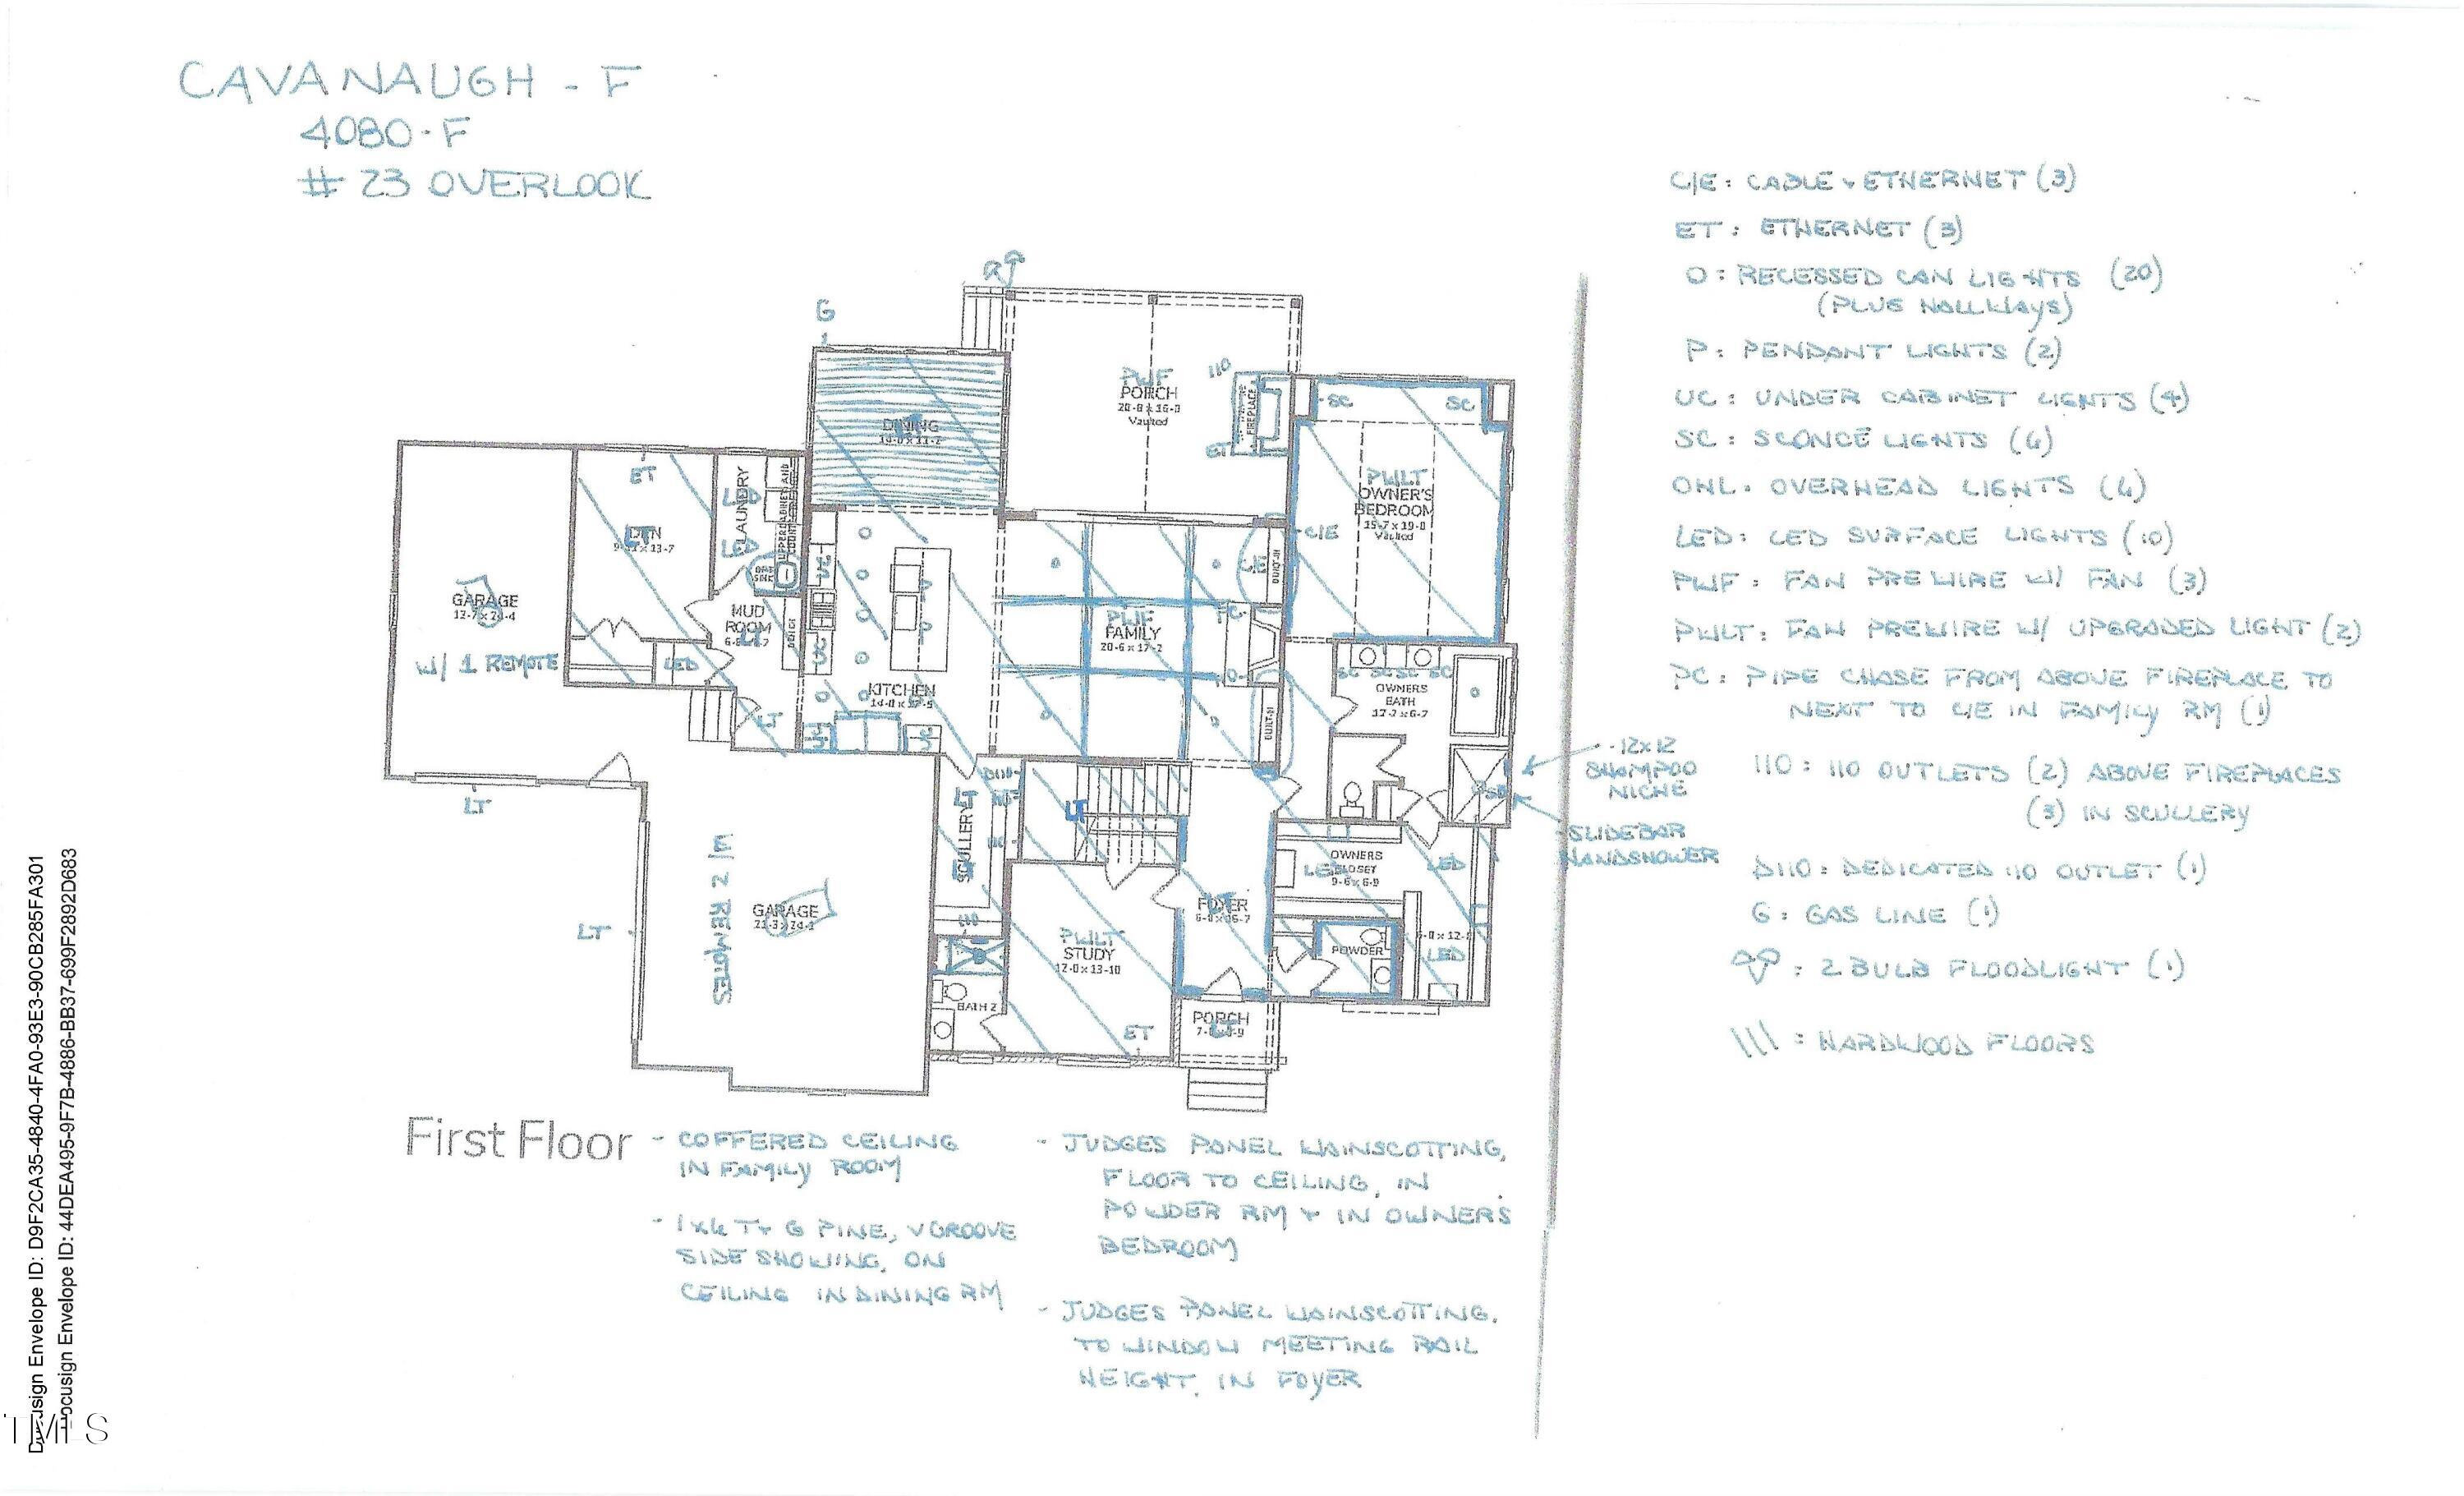 CAVANAUGH - F
4080-F
# 23 OVERLOOK
C/E: CABLE + ETHERNET (3)
ET: ETHERNET (3)
O: RECESSED CAN LIGHTS (20)
(PLUS HALLWAYS)
P: PENDANT LIGHTS (2)
UC: UNDER CABINET LIGHTS (4)
SC: SCONCE LIGHTS (6)
OHL: OVERHEAD LIGHTS (6)
LED: LED SURFACE LIGHTS (10)
PWF: FAN PREWIRE W/ FAN (3)
PWLT: FAN PREWIRE W/ UPGRADED LIGHT (2)
PC: PIPE CHASE FROM ABOVE FIREPLACE TO
NEXT TO C/E IN FAMILY RM (1)
110: 110 OUTLETS (2) ABOVE FIREPLACES
(3) IN SCULLERY
D110: DEDICATED 110 OUTLET (1)
G: GAS LINE (1)
: 2 BULB FLOODLIGHT (1)
\\\ : HARDWOOD FLOORS
G
PWF
PORCH
20-0 x 16-0
Vaulted
110
FIREPLACE
ET
SC
SC
DINING
PWLT
OWNER'S
BEDROOM
15-7 x 19-0
Vaulted
C/E
ET
DEN
LT
LAUNDRY
LED
LED
GARAGE
12-7 x 24-4
W/ 1 REMOTE
MUD
ROOM
LT
LED
LT
UC
UC
UC
UC
KITCHEN
PWF
FAMILY
20-6 x 17-2
C/E
PC
BUILT-IN
BUILT-IN
SC SC SC SC
OWNERS
BATH
-12x12
SHAMPOO
NICHE
SLIDEBAR
HANDSHOWER
LT
LT
W/ 2 REMOTES
GARAGE
SCULLERY
LT
D110
110
LT
OWNERS
CLOSET
9-6 x 6-9
LED
LED
LED
FOYER
LT
POWDER
PWLT
STUDY
12-0 x 13-10
ET
BATH 2
PORCH
LT
First Floor
- COFFERED CEILING
IN FAMILY ROOM
- 1x6 T+G PINE, V GROOVE
SIDE SHOWING, ON
CEILING IN DINING RM
- JUDGES PANEL WAINSCOTTING,
FLOOR TO CEILING, IN
POWDER RM + IN OWNERS
BEDROOM
- JUDGES PANEL WAINSCOTTING,
TO WINDOW MEETING RAIL
HEIGHT, IN FOYER
Docusign Envelope ID: D9F2CA35-4840-4FA0-93E3-90CB285FA301
Docusign Envelope ID: 44DEA495-9F7B-4886-BB37-699F2892D683
TMLS